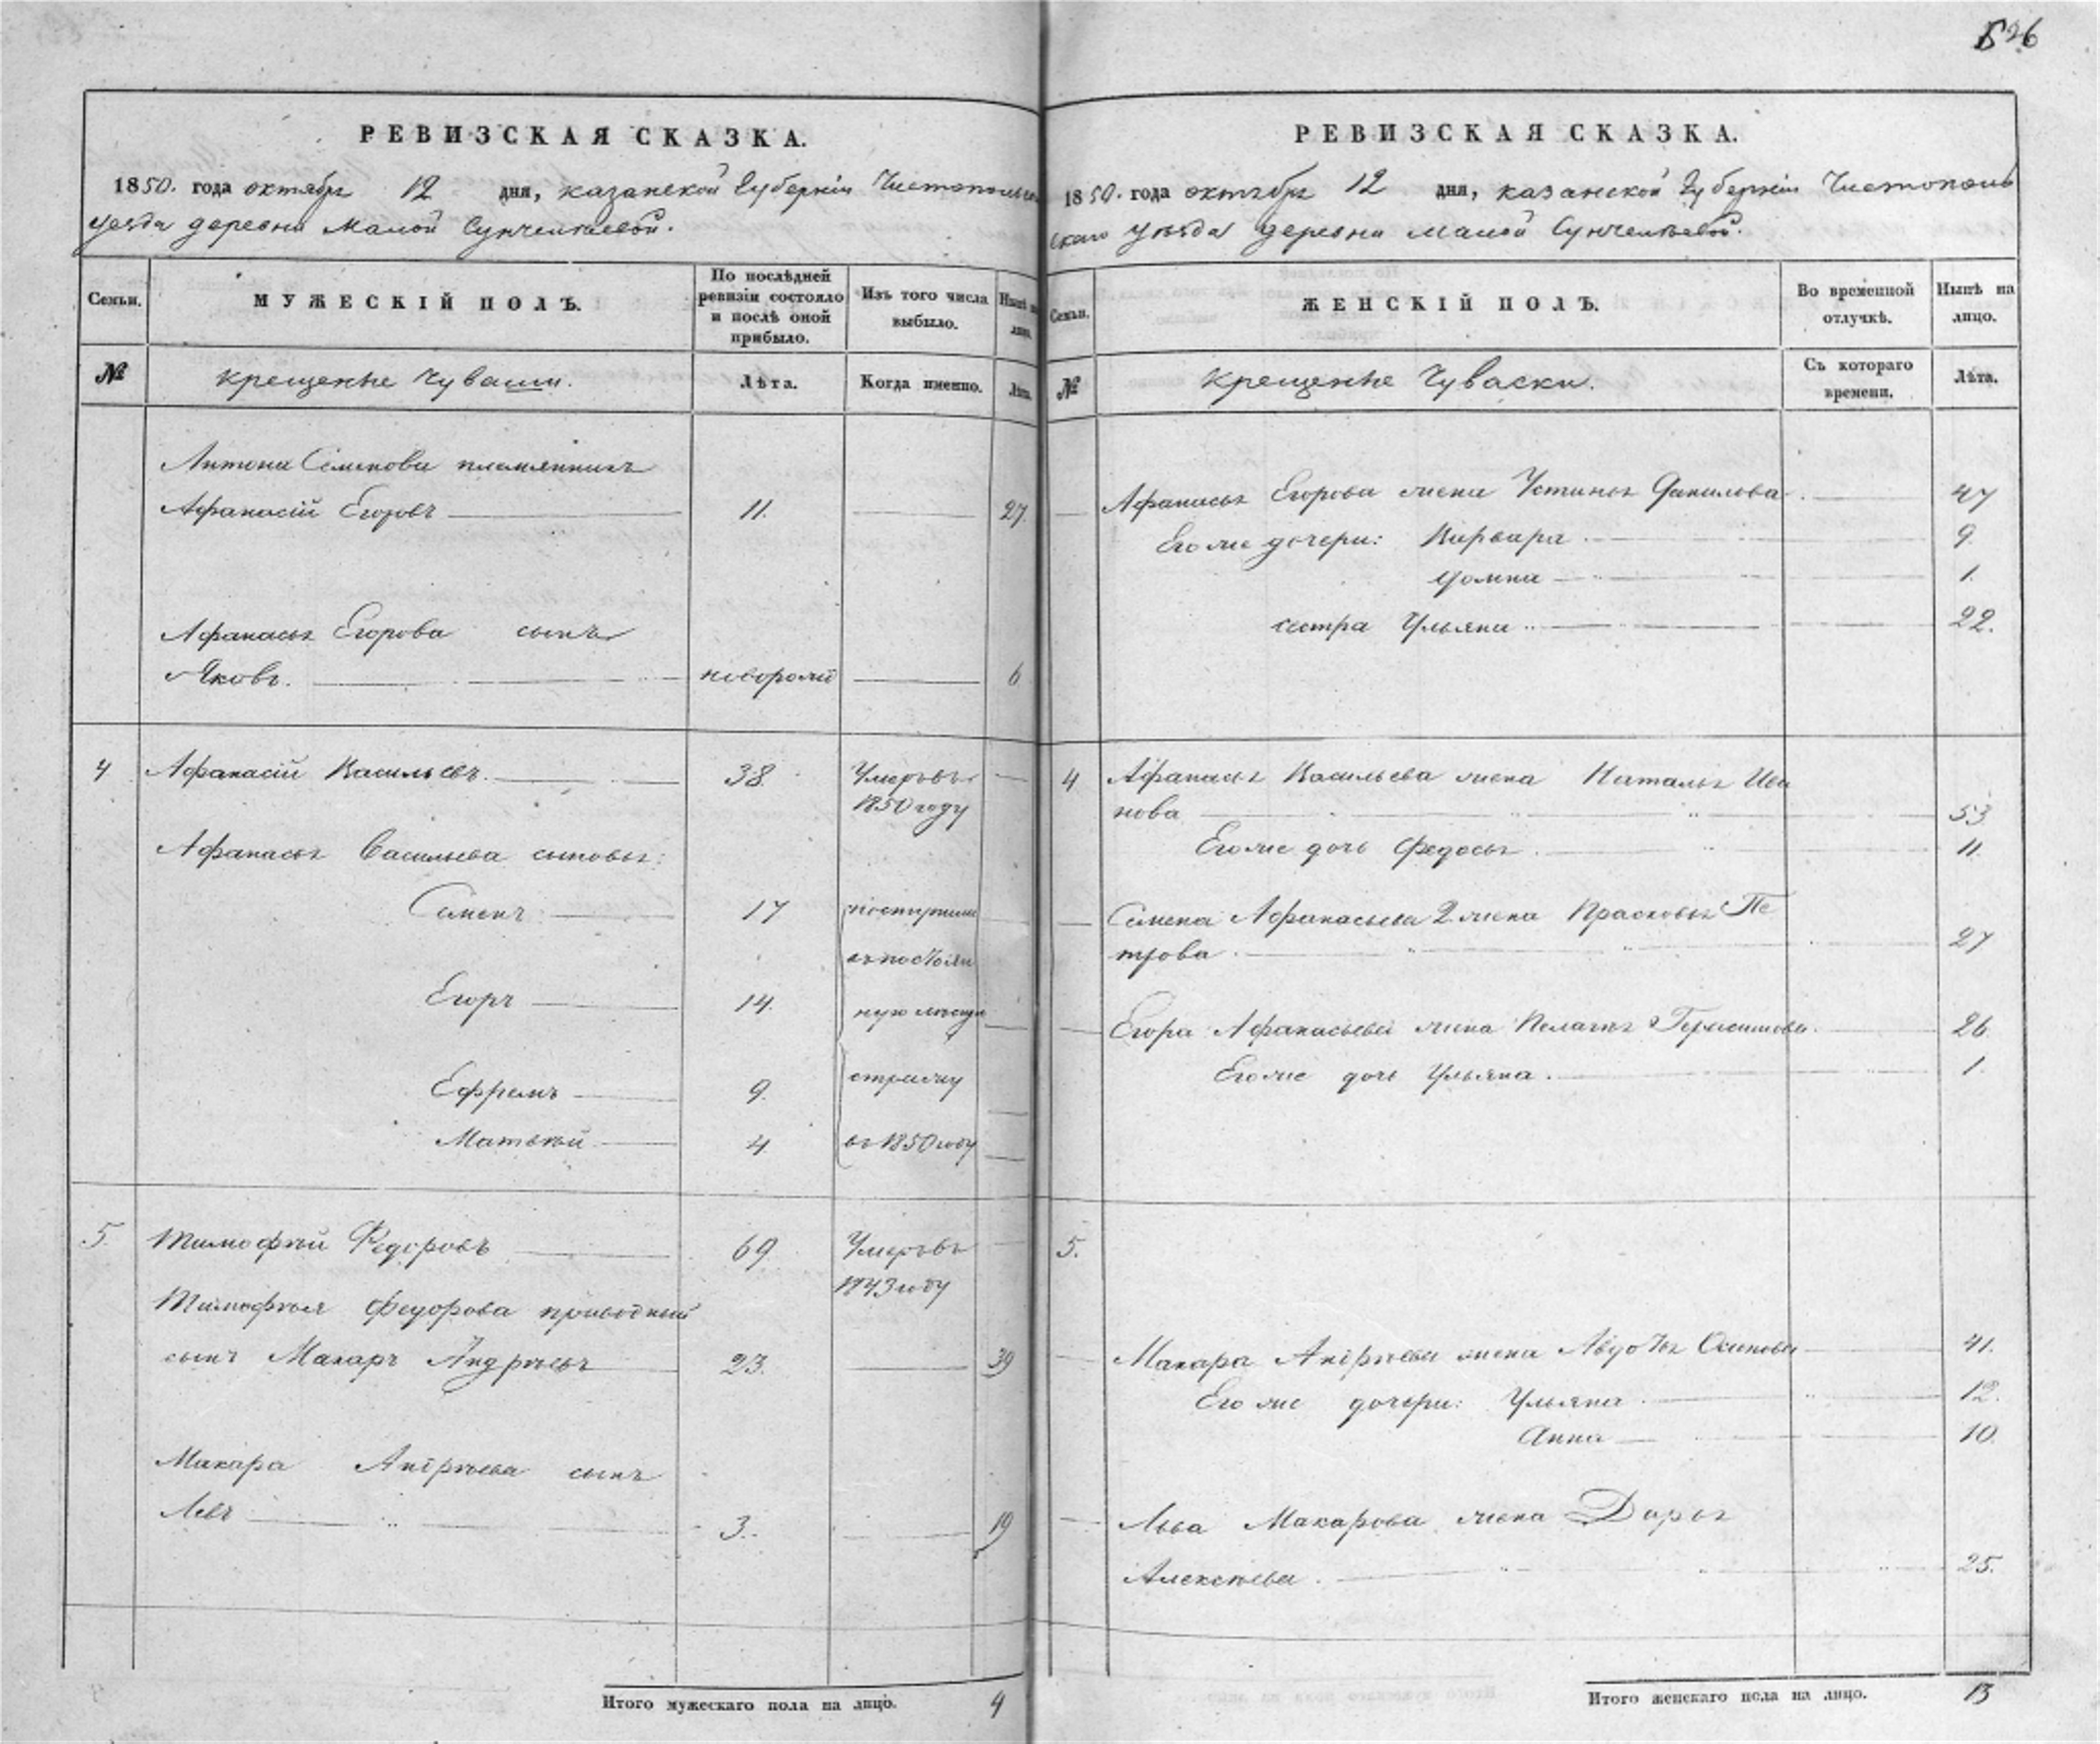 526
РЕВИЗСКАЯ СКАЗКА.
1850. года октября 12 дня, казанской Губерніи Чистопольска
уезда деревни Малой Сунчелеевой.
Семьи.
МУЖЕСКІЙ ПОЛЪ.
По послѣдней ревизіи состояло и послѣ оной прибыло.
Изъ того числа выбыло.
Нынѣ на лицо.
№
крещеные Чуваши.
Лѣта.
Когда именно.
Лѣта.
Антона Семенова племянникъ
Афанасій Егоровъ 11. 27.
Афанасья Егорова сынъ
Яковъ. новорож 6
4 Афанасій Васильевъ. 38. Умеръ въ
1850 году
Афанасья Васильева сыновья:
Семенъ 17 поступили
въ постоян
Егоръ 14. ную
Ефремъ 9.
Матвей 4 въ 1850 году
5. Тимофѣй Федоровъ 69. Умеръ въ
1843 году
Тимофѣя Федорова приводный
сынъ Макаръ Андрѣевъ 23. 39
Макара Андрѣева сынъ
Левъ 3. 19
Итого мужескаго пола на лицо. 4
РЕВИЗСКАЯ СКАЗКА.
1850. года октября 12 дня, казанской Губерніи Чистополь
скаго уѣзда деревни Малой Сунчелеевой.
Семьи.
ЖЕНСКІЙ ПОЛЪ.
Во временной отлучкѣ.
Нынѣ на лицо.
№
крещеные Чуваски.
Съ котораго времени.
Лѣта.
Афанасья Егорова жена Устинья Данилова 47
Его же дочери: Варвара 9.
Домна 1.
сестра Ульяна 22.
4 Афанасья Васильева жена Наталья Ива
нова 53
Его же дочь Федосья 11.
Семена Афанасьева 2 жена Прасковья Пе
трова 27
Егора Афанасьева жена Пелагея Герасимова 26
Его же дочь Ульяна. 1.
5.
Макара Андрѣева жена Авдотья Осипова 41.
Его же дочери: Ульяна 12.
Анна 10.
Льва Макарова жена Дарья
Алексѣева. 25.
Итого женскаго пола на лицо. 13